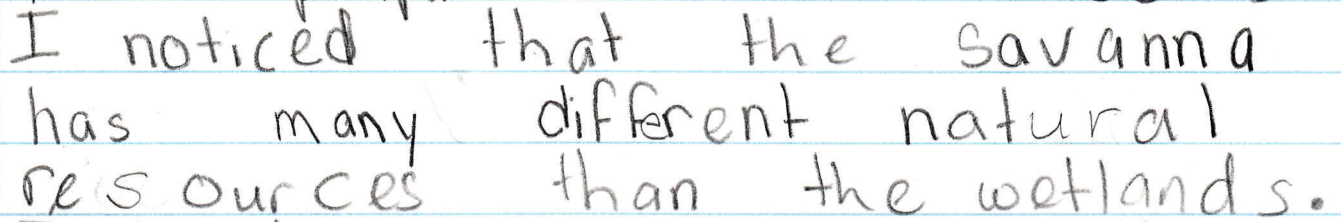 I noticed that the savanna
has many different natural
resources than the wetlands.